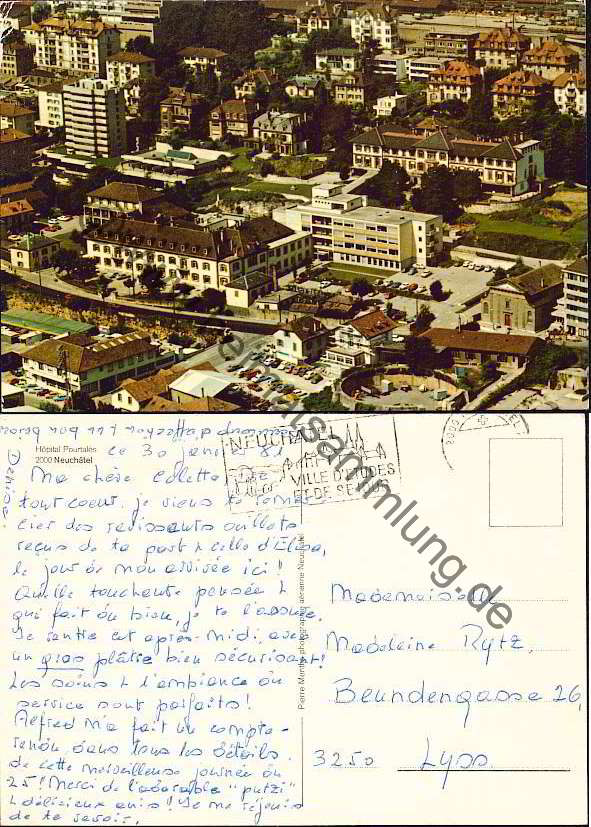 Hôpital Pourtalès
2000 Neuchâtel
ce 30 janvier 81
Ma chère Colette
tout coeur, je viens te remer-
cier des ravissants oeillets
reçus de ta part & celle d'Elisa,
le jour de mon arrivée ici!
Quelle touchante pensée &
qui fait du bien, je te l'assure.
Je rentre cet après-midi, avec
un gros plâtre bien sécurisant!
Les soins & l'ambiance du
service sont parfaits!
Alfred m'a fait un compte-
rendu dans tous les détails
de cette merveilleuse journée du
25! Merci de l'adorable "putzi"
& délicieux anis! Je me réjouis
de te revoir,
d'affection & un bon bisou
Denise.
NEUCHATEL
VILLE D'ETUDES
ET DE SEJOUR
Mademoiselle
Madeleine Rytz,
Beundengasse 26,
3250 Lyss
ansichtskartensammlung.de